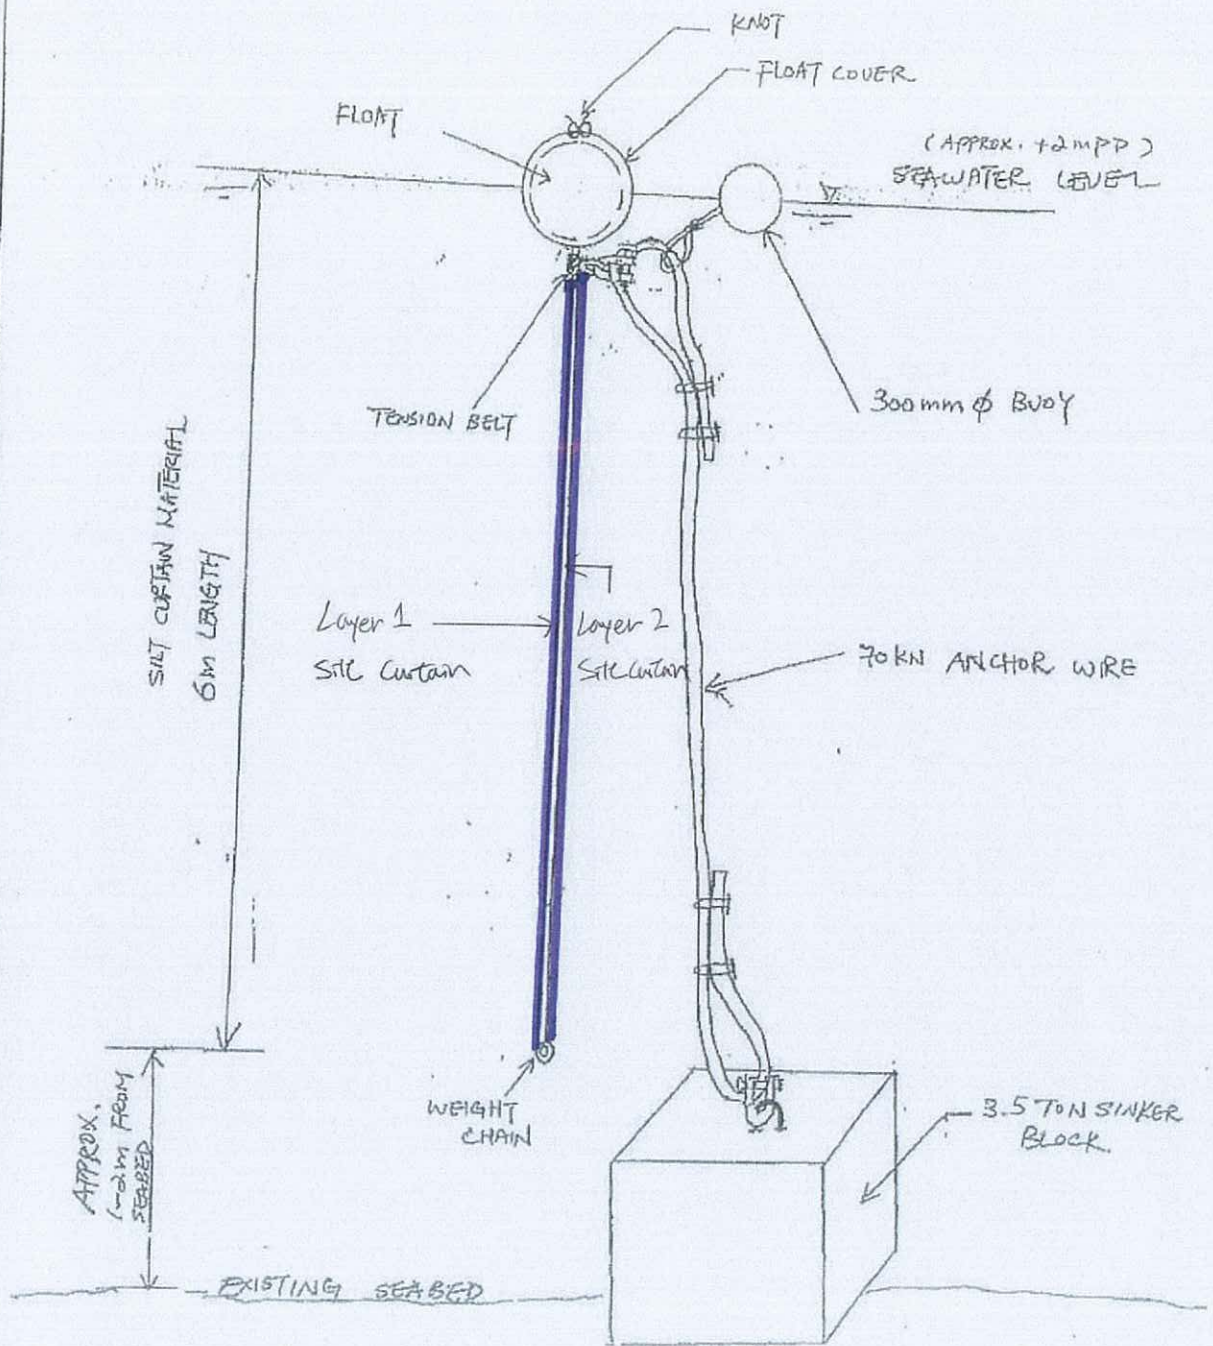 KNOT
FLOAT COVER
FLOAT
(APPROX. +2mPD)
SEAWATER LEVEL
300mm ϕ BUOY
TENSION BELT
SILT CURTAIN MATERIAL
6m LENGTH
Layer 1
Silt Curtain
Layer 2
Silt Curtain
70KN ANCHOR WIRE
WEIGHT
CHAIN
3.5 TON SINKER
BLOCK
APPROX.
1~2m FROM
SEABED
EXISTING SEABED